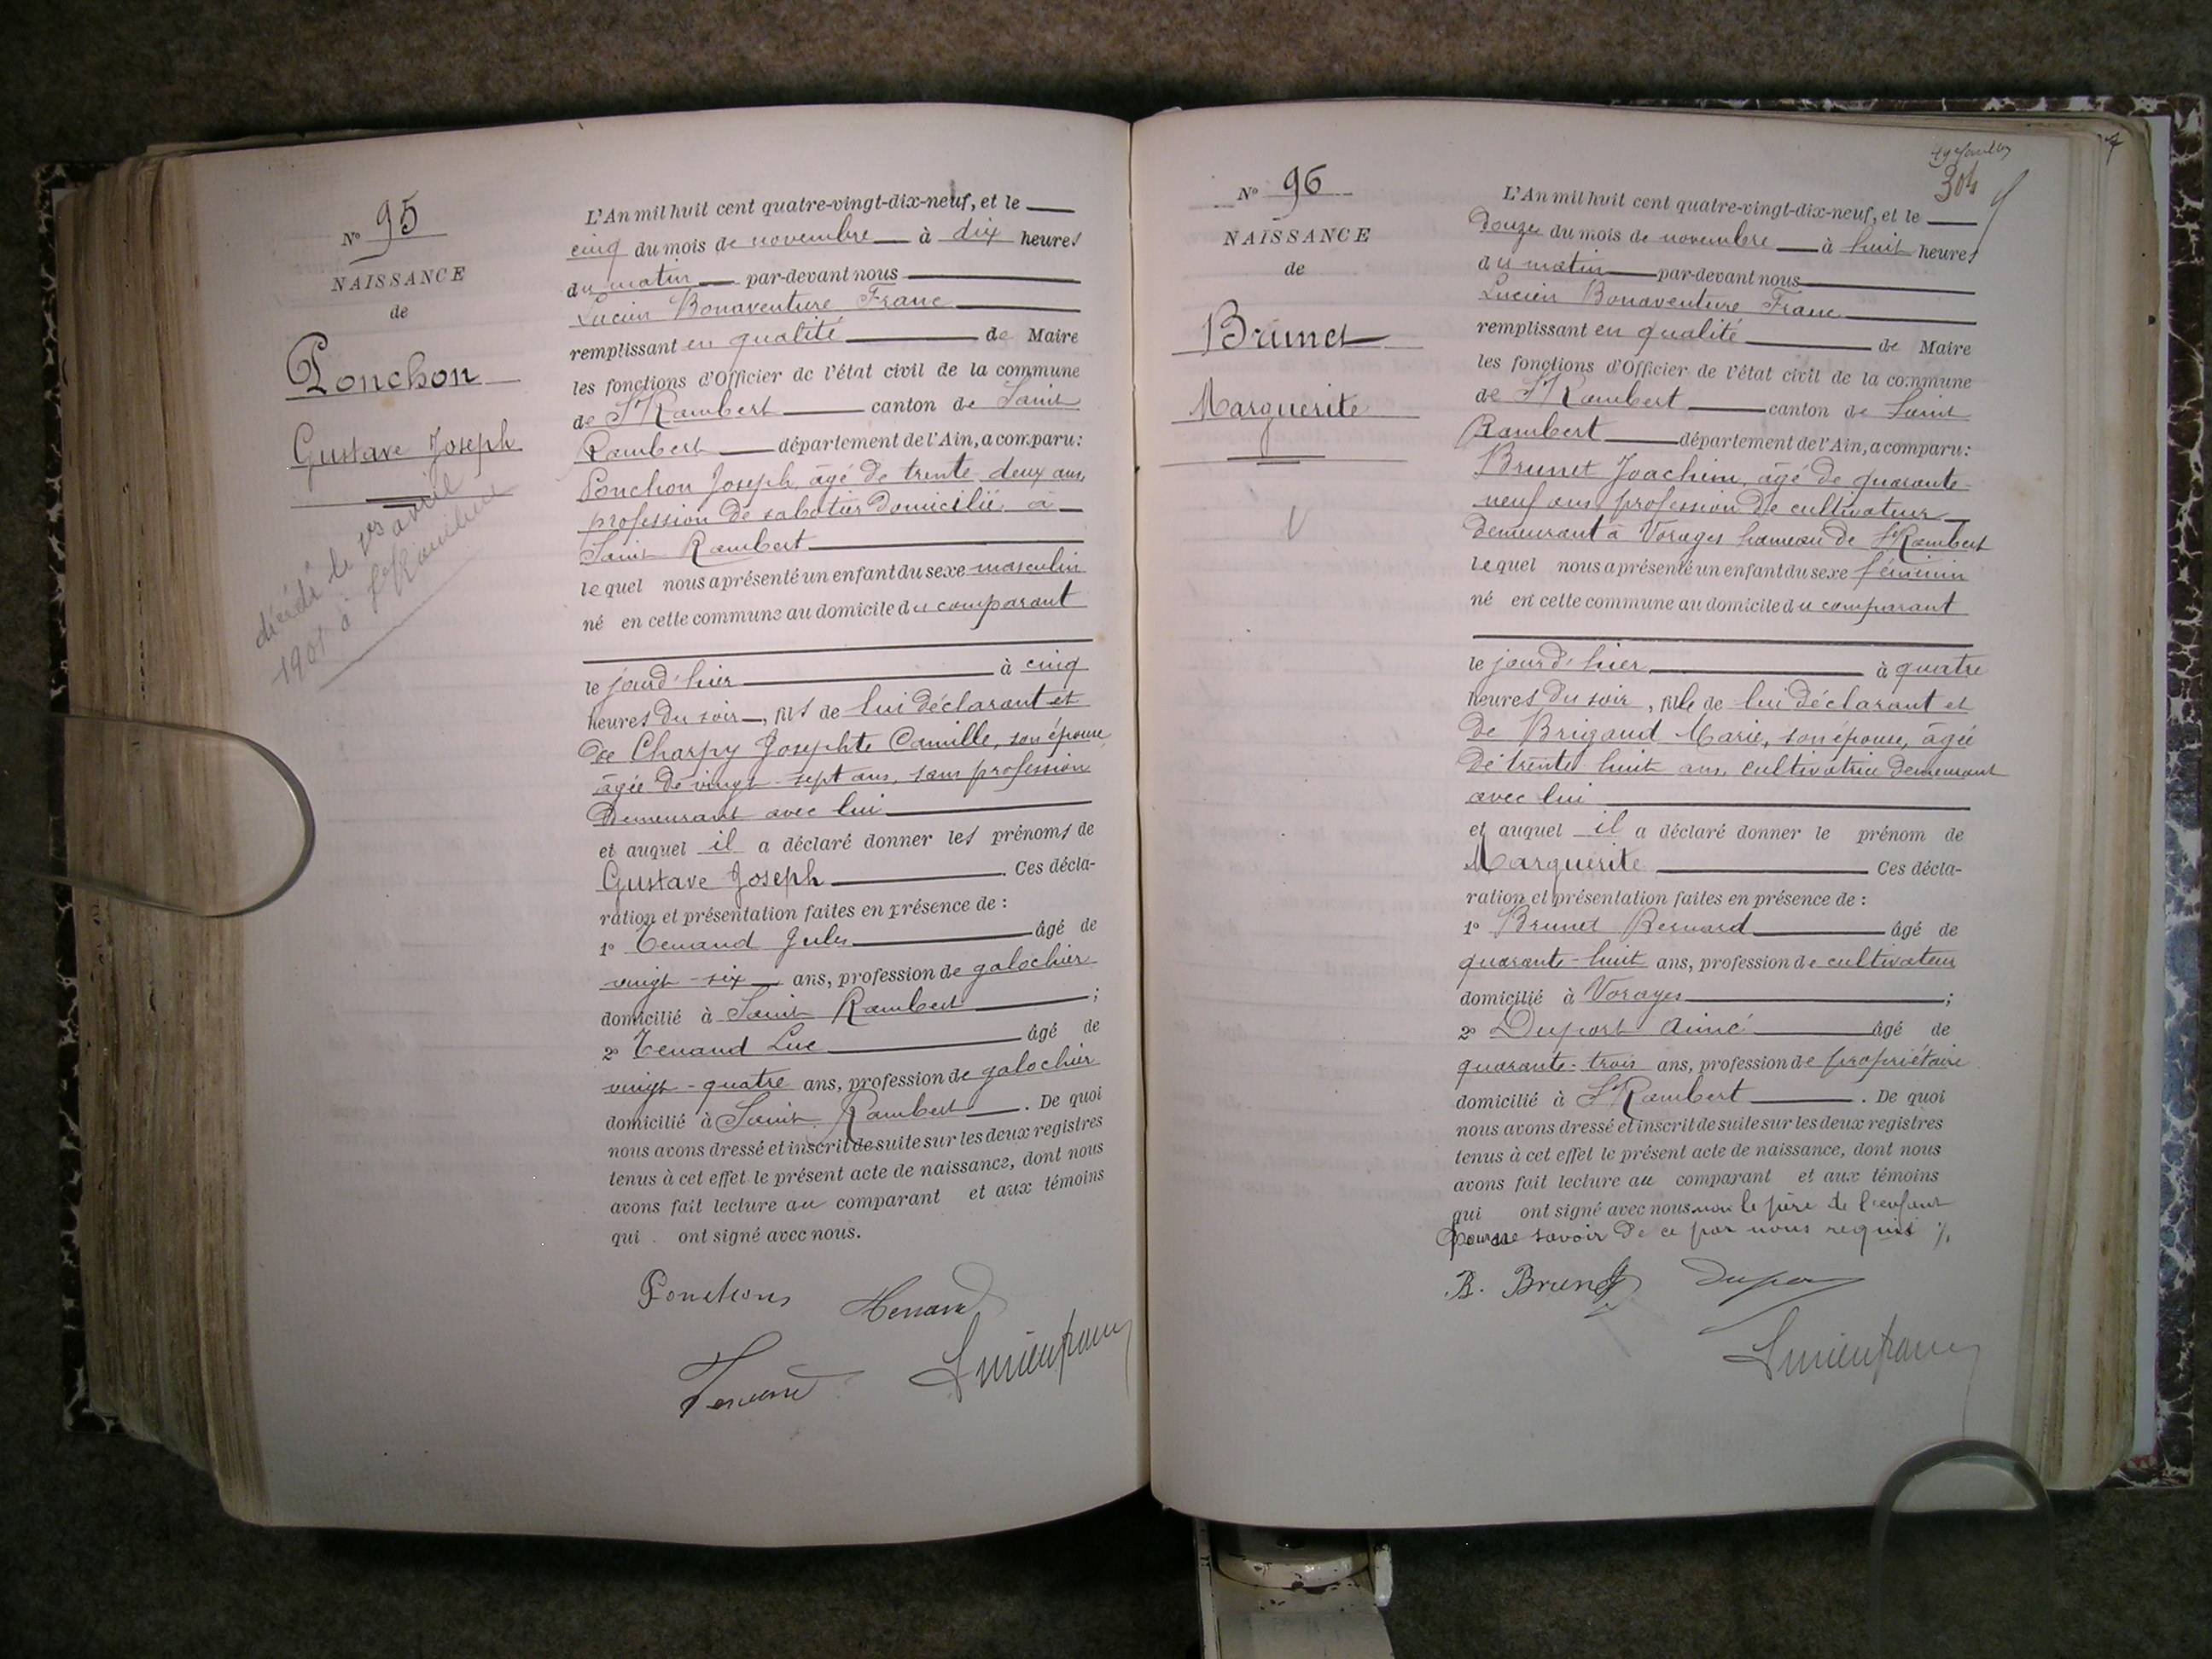 N° 95
NAISSANCE
de
Ponchon
Gustave Joseph
décédé le 1er avril
1901 à St Rambert
L'An mil huit cent quatre-vingt-dix-neuf, et le
cinq du mois de novembre à dix heures
du matin par-devant nous
Lucien Bonaventure Franc
remplissant en qualité de Maire
les fonctions d'Officier de l'état civil de la commune
de St Rambert canton de Saint
Rambert département de l'Ain, a comparu:
Ponchon Joseph, âgé de trente-deux ans,
profession de sabotier domicilié à
Saint Rambert
lequel nous a présenté un enfant du sexe masculin
né en cette commune au domicile du comparant
le jourd'hier à cinq
heures du soir, fils de lui déclarant et
de Charpy Josephte Camille, son épouse,
âgée de vingt-sept ans, sans profession
demeurant avec lui
et auquel il a déclaré donner les prénoms de
Gustave Joseph. Ces décla-
ration et présentation faites en présence de :
1° Tenand Jules âgé de
vingt-six ans, profession de galochier
domicilié à Saint Rambert ;
2° Tenand Luc âgé de
vingt-quatre ans, profession de galochier
domicilié à Saint Rambert. De quoi
nous avons dressé et inscrit de suite sur les deux registres
tenus à cet effet le présent acte de naissance, dont nous
avons fait lecture au comparant et aux témoins
qui ont signé avec nous.
Ponchon Tenand
Tenand Lucien franc
304
N° 96
NAISSANCE
de
Brunet
Marguerite
L'An mil huit cent quatre-vingt-dix-neuf, et le
douze du mois de novembre à huit heures
du matin par-devant nous
Lucien Bonaventure Franc
remplissant en qualité de Maire
les fonctions d'Officier de l'état civil de la commune
de St Rambert canton de Saint
Rambert département de l'Ain, a comparu:
Brunet Joachim, âgé de quarante-
neuf ans, profession de cultivateur
demeurant à Vorages hameau de St Rambert
lequel nous a présenté un enfant du sexe féminin
né en cette commune au domicile du comparant
le jourd'hier à quatre
heures du soir, fille de lui déclarant et
de Brigand Marie, son épouse, âgée
de trente-huit ans, cultivatrice demeurant
avec lui
et auquel il a déclaré donner le prénom de
Marguerite Ces décla-
ration et présentation faites en présence de :
1° Brunet Bernard âgé de
quarante-huit ans, profession de cultivateur
domicilié à Vorages ;
2° Duport Aimé âgé de
quarante-trois ans, profession de propriétaire
domicilié à St Rambert. De quoi
nous avons dressé et inscrit de suite sur les deux registres
tenus à cet effet le présent acte de naissance, dont nous
avons fait lecture au comparant et aux témoins
qui ont signé avec nous non le père de l'enfant
pour ne savoir de ce par nous requis
B. Brunet Duport
Lucien franc